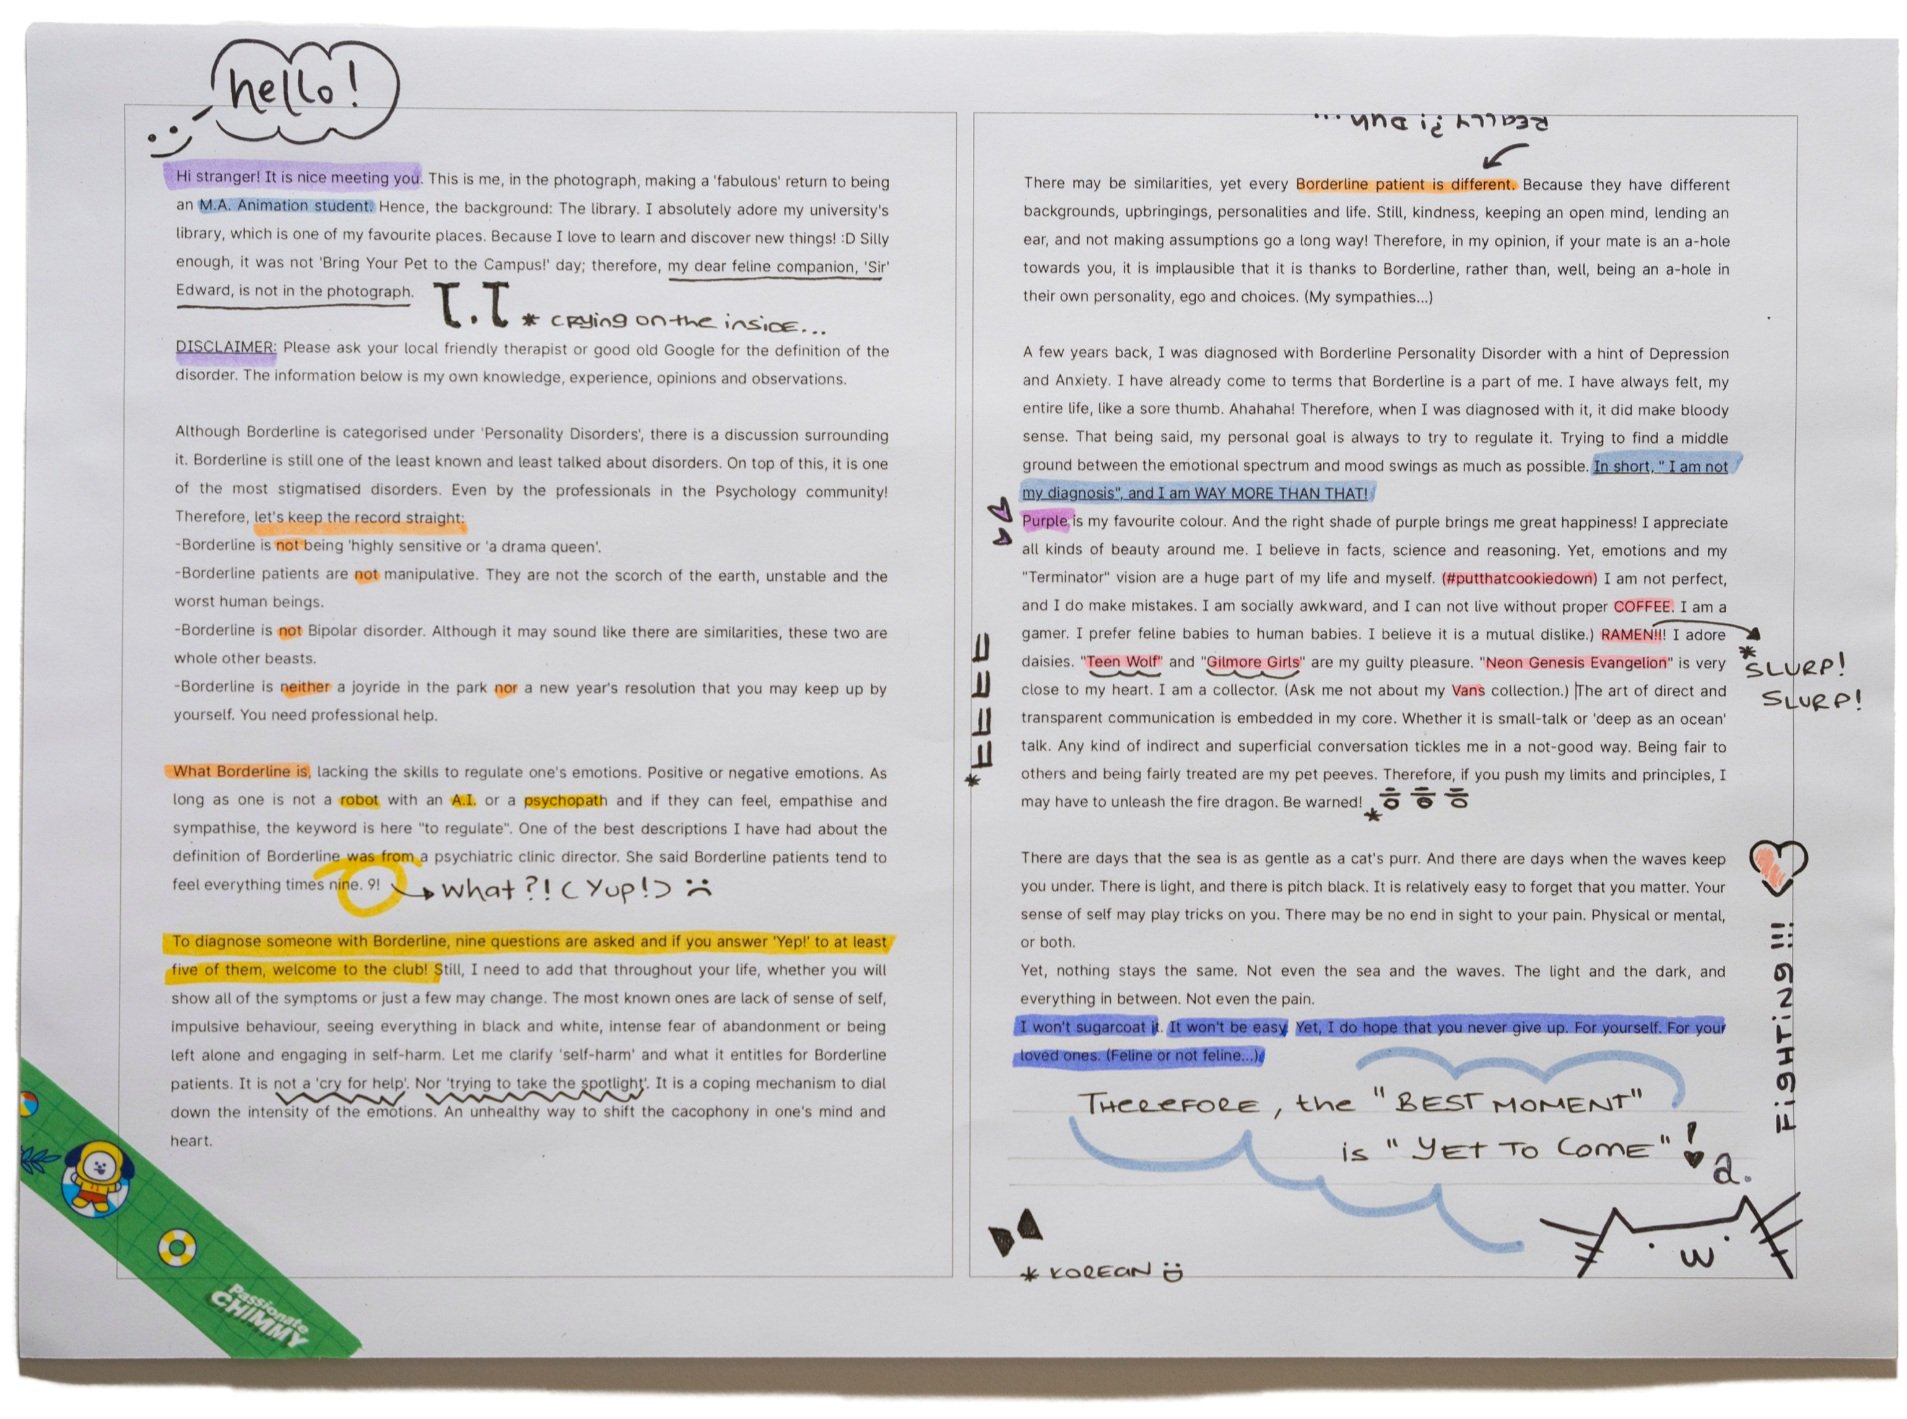 hello!
Hi stranger! It is nice meeting you. This is me, in the photograph, making a 'fabulous' return to being
an M.A. Animation student. Hence, the background: The library. I absolutely adore my university's
library, which is one of my favourite places. Because I love to learn and discover new things! :D Silly
enough, it was not 'Bring Your Pet to the Campus!' day; therefore, my dear feline companion, 'Sir'
Edward, is not in the photograph.
* crying on the inside...
DISCLAIMER: Please ask your local friendly therapist or good old Google for the definition of the
disorder. The information below is my own knowledge, experience, opinions and observations.
Although Borderline is categorised under 'Personality Disorders', there is a discussion surrounding
it. Borderline is still one of the least known and least talked about disorders. On top of this, it is one
of the most stigmatised disorders. Even by the professionals in the Psychology community!
Therefore, let's keep the record straight:
-Borderline is not being 'highly sensitive or 'a drama queen'.
-Borderline patients are not manipulative. They are not the scorch of the earth, unstable and the
worst human beings.
-Borderline is not Bipolar disorder. Although it may sound like there are similarities, these two are
whole other beasts.
-Borderline is neither a joyride in the park nor a new year's resolution that you may keep up by
yourself. You need professional help.
What Borderline is, lacking the skills to regulate one's emotions. Positive or negative emotions. As
long as one is not a robot with an A.I. or a psychopath and if they can feel, empathise and
sympathise, the keyword is here "to regulate". One of the best descriptions I have had about the
definition of Borderline was from a psychiatric clinic director. She said Borderline patients tend to
feel everything times nine. 9!
What?! (Yup!) :(
To diagnose someone with Borderline, nine questions are asked and if you answer 'Yep!' to at least
five of them, welcome to the club! Still, I need to add that throughout your life, whether you will
show all of the symptoms or just a few may change. The most known ones are lack of sense of self,
impulsive behaviour, seeing everything in black and white, intense fear of abandonment or being
left alone and engaging in self-harm. Let me clarify 'self-harm' and what it entitles for Borderline
patients. It is not a 'cry for help'. Nor 'trying to take the spotlight'. It is a coping mechanism to dial
down the intensity of the emotions. An unhealthy way to shift the cacophony in one's mind and
heart.
Passionate
CHIMMY
REALLY?! DUH...
There may be similarities, yet every Borderline patient is different. Because they have different
backgrounds, upbringings, personalities and life. Still, kindness, keeping an open mind, lending an
ear, and not making assumptions go a long way! Therefore, in my opinion, if your mate is an a-hole
towards you, it is implausible that it is thanks to Borderline, rather than, well, being an a-hole in
their own personality, ego and choices. (My sympathies...)
A few years back, I was diagnosed with Borderline Personality Disorder with a hint of Depression
and Anxiety. I have already come to terms that Borderline is a part of me. I have always felt, my
entire life, like a sore thumb. Ahahaha! Therefore, when I was diagnosed with it, it did make bloody
sense. That being said, my personal goal is always to try to regulate it. Trying to find a middle
ground between the emotional spectrum and mood swings as much as possible. In short, " I am not
my diagnosis", and I am WAY MORE THAN THAT!
Purple is my favourite colour. And the right shade of purple brings me great happiness! I appreciate
all kinds of beauty around me. I believe in facts, science and reasoning. Yet, emotions and my
"Terminator" vision are a huge part of my life and myself. (#putthatcookiedown) I am not perfect,
and I do make mistakes. I am socially awkward, and I can not live without proper COFFEE. I am a
gamer. I prefer feline babies to human babies. I believe it is a mutual dislike.) RAMEN!!! I adore
daisies. "Teen Wolf" and "Gilmore Girls" are my guilty pleasure. "Neon Genesis Evangelion" is very
close to my heart. I am a collector. (Ask me not about my Vans collection.) The art of direct and
transparent communication is embedded in my core. Whether it is small-talk or 'deep as an ocean'
talk. Any kind of indirect and superficial conversation tickles me in a not-good way. Being fair to
others and being fairly treated are my pet peeves. Therefore, if you push my limits and principles, I
may have to unleash the fire dragon. Be warned! * ㅎㅎㅎ
* ㅋㅋㅋㅋ
* SLURP!
SLURP!
There are days that the sea is as gentle as a cat's purr. And there are days when the waves keep
you under. There is light, and there is pitch black. It is relatively easy to forget that you matter. Your
sense of self may play tricks on you. There may be no end in sight to your pain. Physical or mental,
or both.
Yet, nothing stays the same. Not even the sea and the waves. The light and the dark, and
everything in between. Not even the pain.
I won't sugarcoat it. It won't be easy. Yet, I do hope that you never give up. For yourself. For your
loved ones. (Feline or not feline...)
FIGHTING!!!
THEREFORE, the "BEST MOMENT"
is "YET TO COME"!
a.
* KOREAN